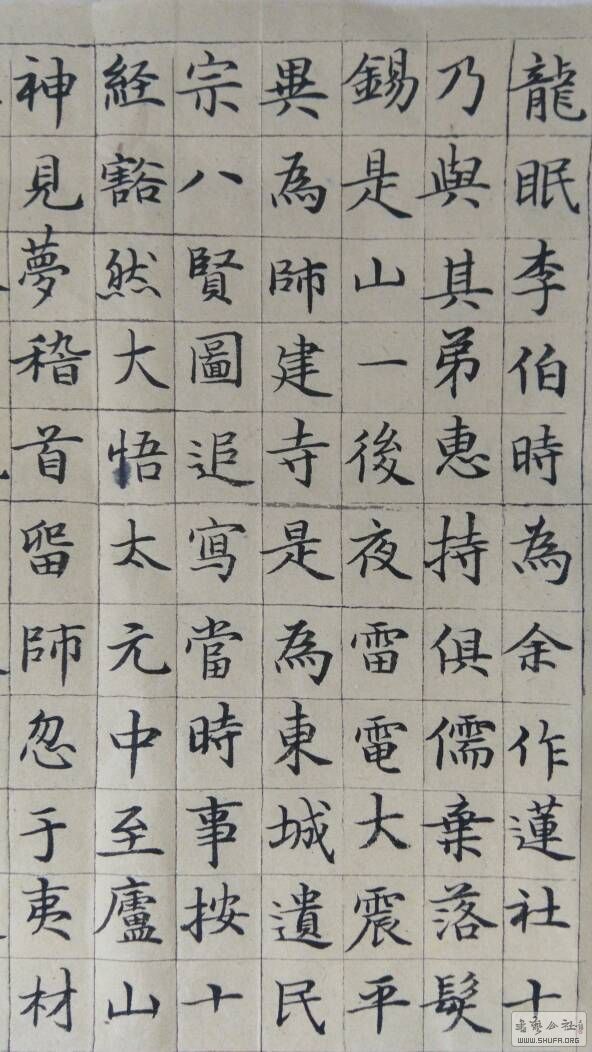 龍眠李伯時為余作蓮社十
乃與其弟惠持俱儒棄落髮
錫是山一後夜雷電大震平
異為師建寺是為東城遺民
宗八賢圖追寫當時事按十
経豁然大悟太元中至廬山
神見夢稽首留師忽于夷材
WWW.SHUFA.ORG